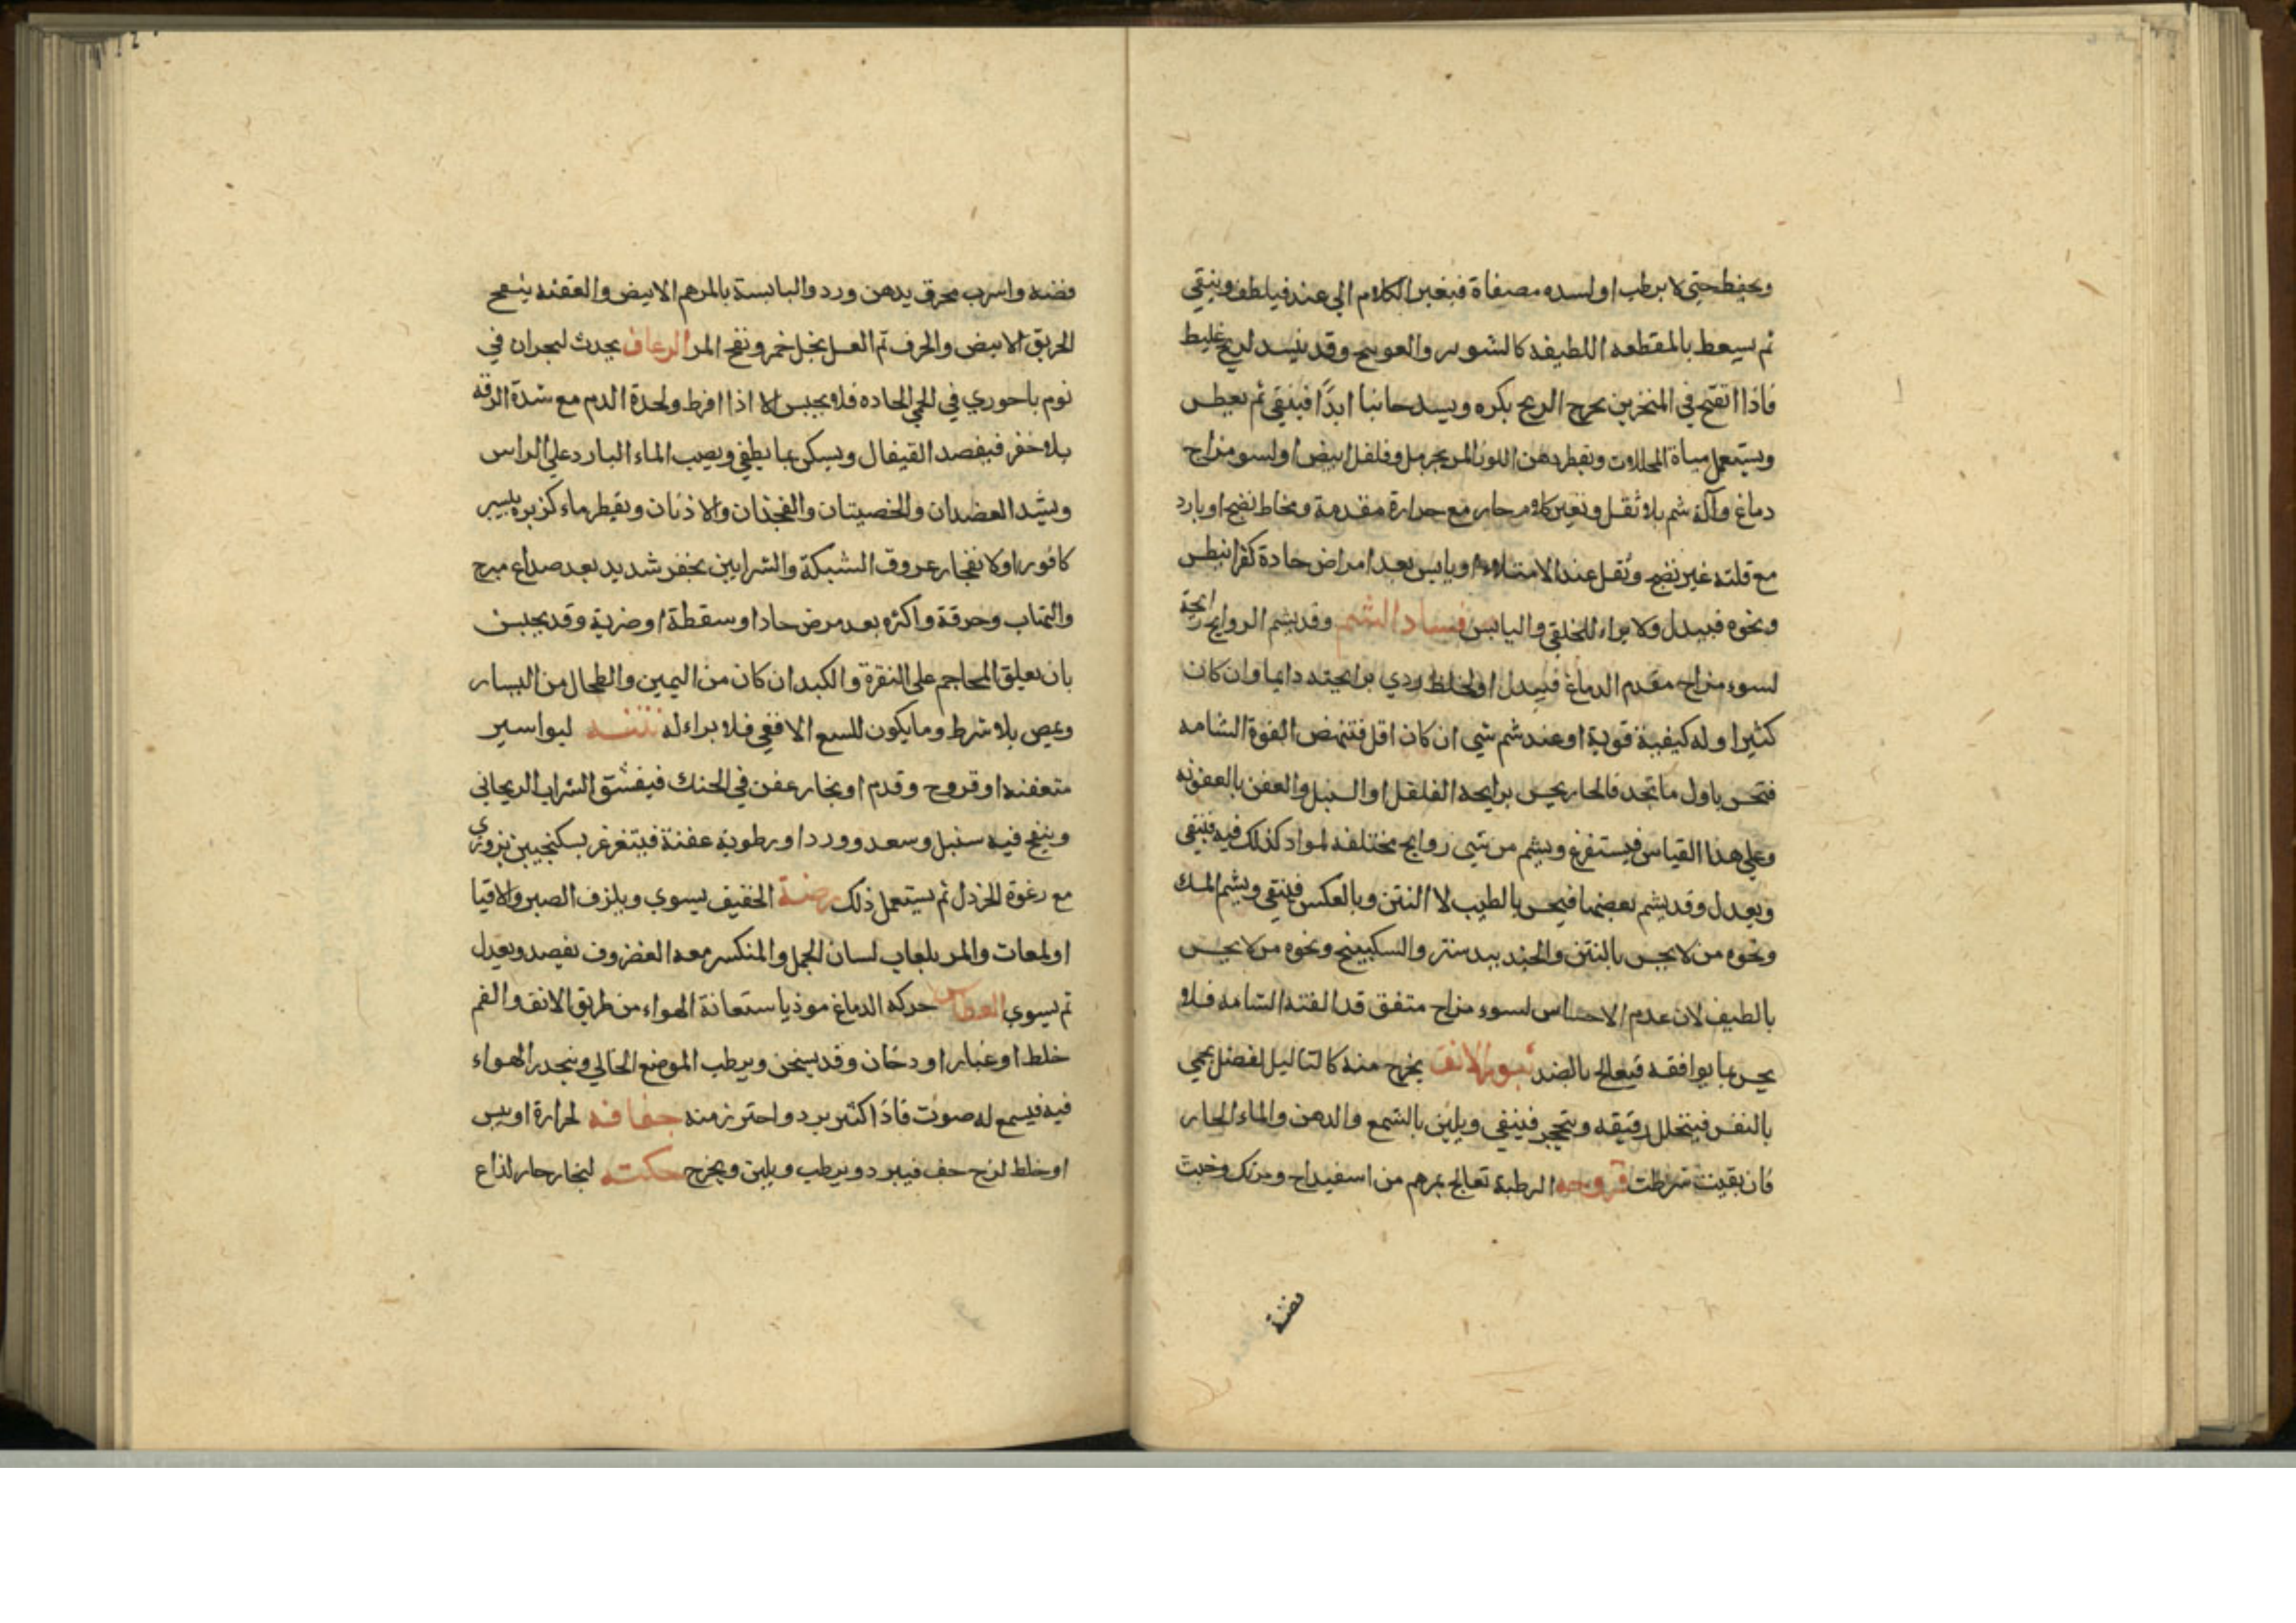 ويحفظ حتى لا يرطب اولسده مصفاة فبغير الكلام الى عند فيلطف وينقي
ثم يسعط بالمقطعه اللطيفه كالشونيز والعوسج وقد ينسد لريح غليط
فاذا انفتح في المنخرين يخرج الريح بكره ويسد جانبا ابدًا فينقي ثم يعطس
ويستعمل مياة المحللات ويقطر دهن اللوز المر بحرمل وفلفل ابيض اولسو مزاج
دماغ وآلة شم بلا ثقل وتغير كلام حار مع حرارة مقدمة ومخاط نضيج او بارد
مع قلته غير نضج وثقل عند الامتلاء او يابس بعد امراض حادة كقرانيطس
ونحوه فيبدل ولا براء للخلقي واليابس فساد الشم وقد يشم الروايح رايحة
لسوء مزاج مقدم الدماغ فيبدل او لخلط ردي برايحته دايما وان كان
كثيرا وله كيفية قوية او عند شم شي ان كان اقل فتنهض القوة الشامه
فتحس باول ما تجد فالحار يحس برايحه الفلفل او السنبل والعفن بالعفونه
وعلى هذا القياس فيستفرغ ويشم من شي روايح مختلفه لمواد كذلك فيه فينقي
ويعدل وقد يشم بعضها فيحس بالطيب لا النتن وبالعكس فينقي ويشم المسك
ونحوه من لا يحس بالنتن والجندبيدستر والسكبينج ونحوه من لا يحس
بالطيف لان عدم الاحساس لسوء مزاج متفق قد الفته الشامه فلا
يحس بما يوافقه فيعالج بالضد بثور الانف يخرج منه كالثاليل لفضل يحي
بالنفس فيتحلل رقيقه ويتحجر فينقي ويلين بالشمع والدهن والماء الحار
فان بقيت شرطت قروحه الرطبة تعالج بمرهم من اسفيداج ومرتك وخبث
فضة
فضه واسرب محرق بدهن ورد واليابسة بالمرهم الابيض والعفنه ينفح
الخربق الابيض والحرف ثم الغسل بخل خمر ونفح المر الرعاف يحدث لبحران في
نوم باحوري في الحمى الحاده فلا يحبس الا اذا افرط ولحدة الدم مع شدة الرقه
بلا حفر فيفصد القيفال ويسكن بما يطفي ويصب الماء البارد على الراس
ويشد العضدان والخصيتان والفخذان والاذنان ويقطر ماء كزبره بيسير
كافور اولانفجار عروق الشبكة والشرايين بحفر شديد بعد صداع مبرح
والتهاب وحرقة واكثره بعد مرض حاد او سقطة او ضربة وقد يحبس
بان يعلق المحاجم على النقرة والكبد ان كان من اليمين والطحال من اليسار
وعيص بلا شرط وما يكون للسع الافعى فلا براء له نتنه لبواسير
متعفنه او قروح وقدم او بخار عفن في الحنك فيفسق الشراب الريحاني
وينفح فيه سنبل وسعد وورد او رطوبة عفنة فيتغرغر بسكنجبين بزوري
مع رغوة الخردل ثم يستعمل ذلك رضة الخفيف يسوي ويلزف الصبر والاقيا
او لمعات والمر بلعاب لسان الحمل والمنكسر معه الغضروف يفصد ويعدل
ثم يسوي العطاس حركه الدماغ موذيا ستعانة الهواء من طريق الانف والفم
خلط او غبار او دخان وقد يسخن ويرطب الموضع الخالي وينحدر الهواء
فيه فيسمع له صوت فاذا كثير برد واحترز منه جفافه لحرارة او يبس
او خلط لزج جف فيبرد ويرطب ويلين ويخرج حكته لبخار حار لذاع